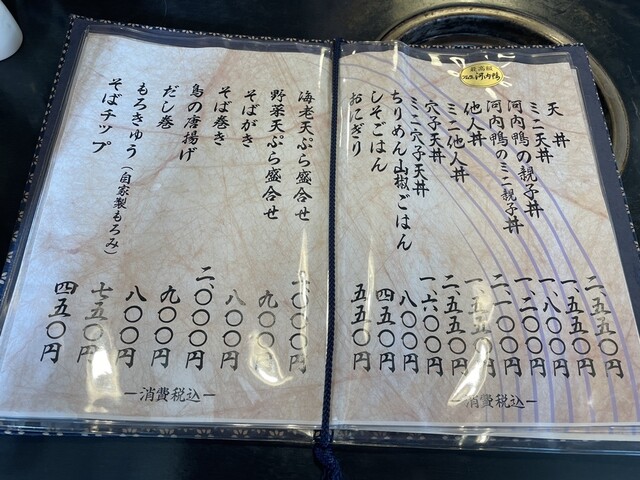 最高級
ツムラ河内鴨
天丼 二、五五〇円
ミニ天丼 一、五五〇円
河内鴨の親子丼 一、八〇〇円
河内鴨のミニ親子丼 一、二〇〇円
他人丼 二、一〇〇円
ミニ他人丼 一、五五〇円
穴子天丼 二、五五〇円
ミニ穴子天丼 一、六〇〇円
ちりめん山椒ごはん 八〇〇円
しそごはん 四五〇円
おにぎり 五五〇円
―消費税込―
海老天ぷら盛合せ 二、〇〇〇円
野菜天ぷら盛合せ 九〇〇円
そばがき 八〇〇円
そば巻き 二、〇〇〇円
鳥の唐揚げ 九〇〇円
だし巻 八〇〇円
もろきゅう（自家製もろみ） 七五〇円
そばチップ 四五〇円
―消費税込―